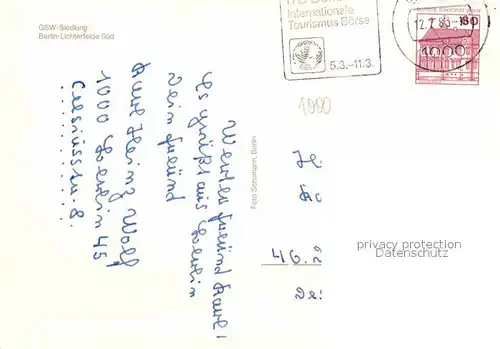 GSW-Siedlung
Berlin-Lichterfelde Süd
Internationale
Tourismus Börse
5.3.–11.3.
1000
60
1000
Werter freund Karl!
Es grüßt aus Berlin
Dein freund
Karl Heinz Wolf
1000 Berlin 45
Celsiusstr. 8.
Foto Schumann, Berlin
46.2
privacy protection
Datenschutz